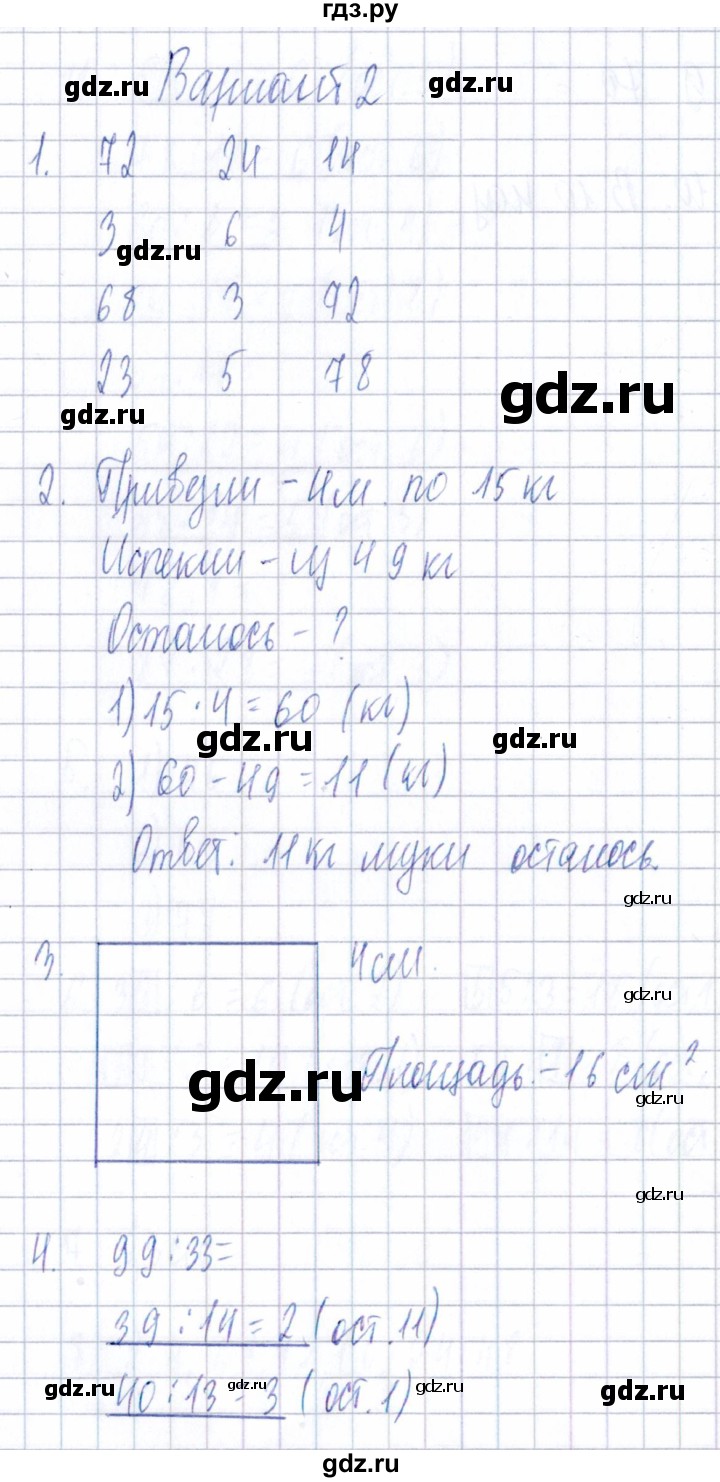 гдз.ру
gdz.ru Вариант 2 gdz.ru
1. 72 24 14
3 6 4
gdz.ru
68 3 92
23 5 78
gdz.ru
gdz.ru
2. Привезли - 4 м. по 15 кг
Испекли - из 49 кг
Осталось - ?
1) 15 · 4 = 60 (кг)
gdz.ru gdz.ru
2) 60 - 49 = 11 (кг)
Ответ: 11 кг муки осталось.
gdz.ru
3. 4 см.
gdz.ru
gdz.ru Площадь: - 16 см²
gdz.ru
gdz.ru
4. 99 : 33 =
39 : 14 = 2 (ост. 11)
40 : 13 = 3 (ост. 1)
gdz.ru gdz.ru gdz.ru gdz.ru
gdz.ru